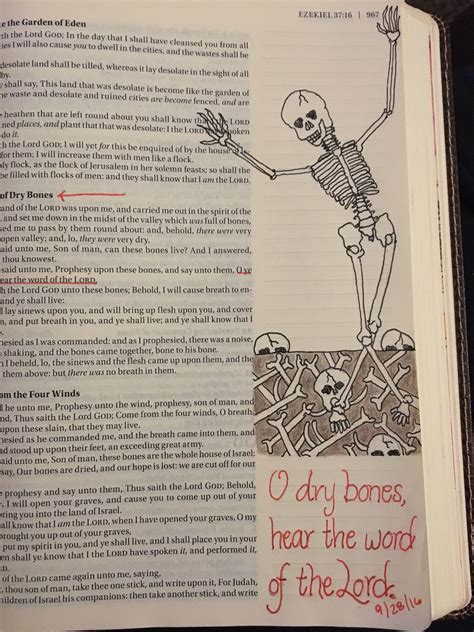 EZEKIEL 37:16 | 967
e the Garden of Eden
th the Lord GOD; In the day that I shall have cleansed you from all
ies I will also cause you to dwell in the cities, and the wastes shall be
desolate land shall be tilled, whereas it lay desolate in the sight of all
by.
shall say, This land that was desolate is become like the garden of
he waste and desolate and ruined cities are become fenced, and are
e heathen that are left round about you shall know that the LORD
ned places, and plant that that was desolate: I the LORD spoken
do it.
th the Lord GOD; I will yet for this be enquired of by the house of
for them; I will increase them with men like a flock.
oly flock, as the flock of Jerusalem in her solemn feasts; so shall the
be filled with flocks of men: and they shall know that I am the LORD.
of Dry Bones
and of the LORD was upon me, and carried me out in the spirit of the
, and set me down in the midst of the valley which was full of bones,
sed me to pass by them round about: and, behold, there were very
open valley; and, lo, they were very dry.
said unto me, Son of man, can these bones live? And I answered,
thou knowest.
said unto me, Prophesy upon these bones, and say unto them, O ye
ear the word of the LORD.
th the Lord GOD unto these bones; Behold, I will cause breath to en-
and ye shall live:
ll lay sinews upon you, and will bring up flesh upon you, and cover
n, and put breath in you, and ye shall live; and ye shall know that I
hesied as I was commanded: and as I prophesied, there was a noise,
shaking, and the bones came together, bone to his bone.
n I beheld, lo, the sinews and the flesh came up upon them, and the
them above: but there was no breath in them.
om the Four Winds
id he unto me, Prophesy unto the wind, prophesy, son of man, and
nd, Thus saith the Lord GOD; Come from the four winds, O breath,
upon these slain, that they may live.
hesied as he commanded me, and the breath came into them, and
nd stood up upon their feet, an exceeding great army.
said unto me, Son of man, these bones are the whole house of Israel:
say, Our bones are dried, and our hope is lost: we are cut off for our
e prophesy and say unto them, Thus saith the Lord GOD; Behold,
, I will open your graves, and cause you to come up out of your
ring you into the land of Israel.
all know that I am the LORD, when I have opened your graves, O my
brought you up out of your graves,
put my spirit in you, and ye shall live, and I shall place you in your
en shall ye know that I the LORD have spoken it, and performed it,
RD.
d of the LORD came again unto me, saying,
, thou son of man, take thee one stick, and write upon it, For Judah,
hildren of Israel his companions: then take another stick, and write
O dry bones,
hear the word
of the Lord.
9/28/16